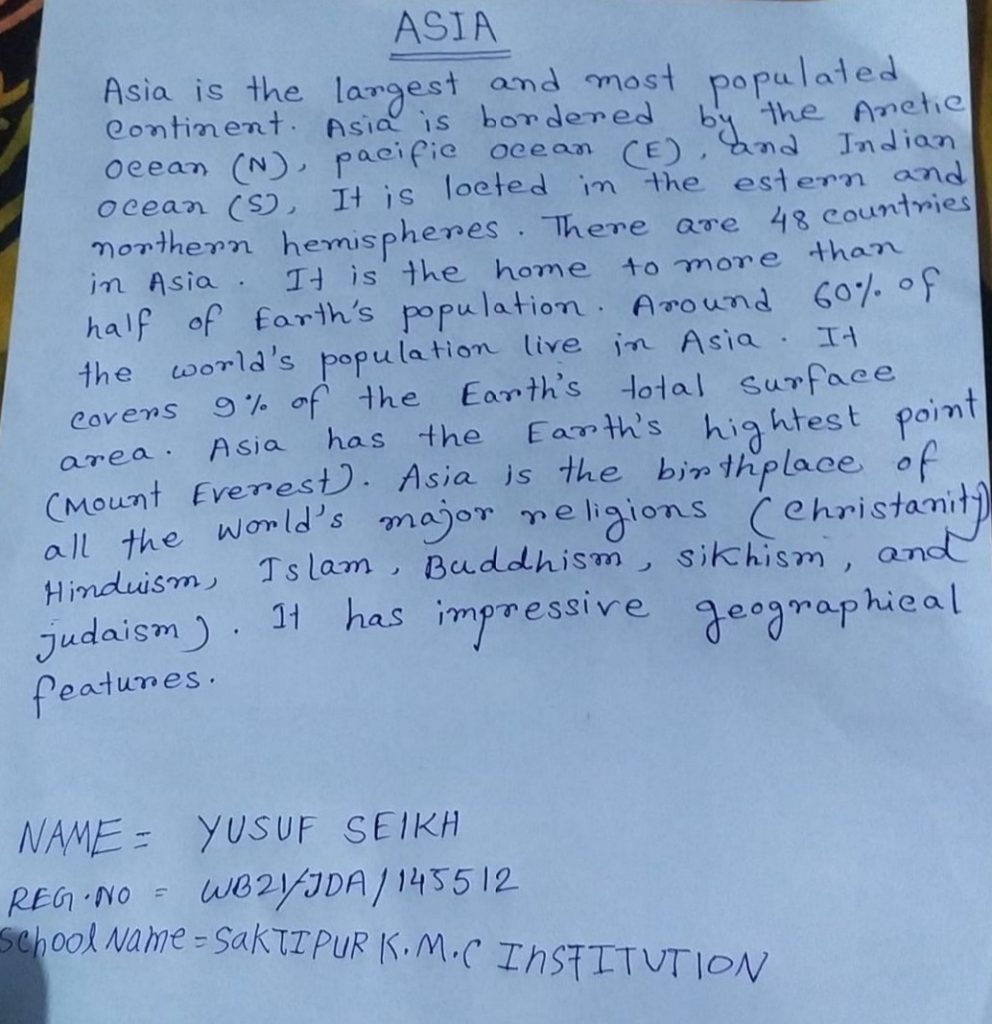 ASIA
Asia is the largest and most populated
continent. Asia is bordered by the Arctic
ocean (N), pacific ocean (E), and Indian
ocean (S), It is locted in the estern and
northern hemispheres. There are 48 countries
in Asia. It is the home to more than
half of Earth's population. Around 60% of
the world's population live in Asia. It
covers 9% of the Earth's total surface
area. Asia has the Earth's hightest point
(Mount Everest). Asia is the birthplace of
all the world's major religions (christanity
Hinduism, Islam, Buddhism, sikhism, and
judaism). It has impressive geographical
features.
NAME = YUSUF SEIKH
REG.NO = WB21/JDA/145512
School Name = SAKTIPUR K.M.C INSTITUTION